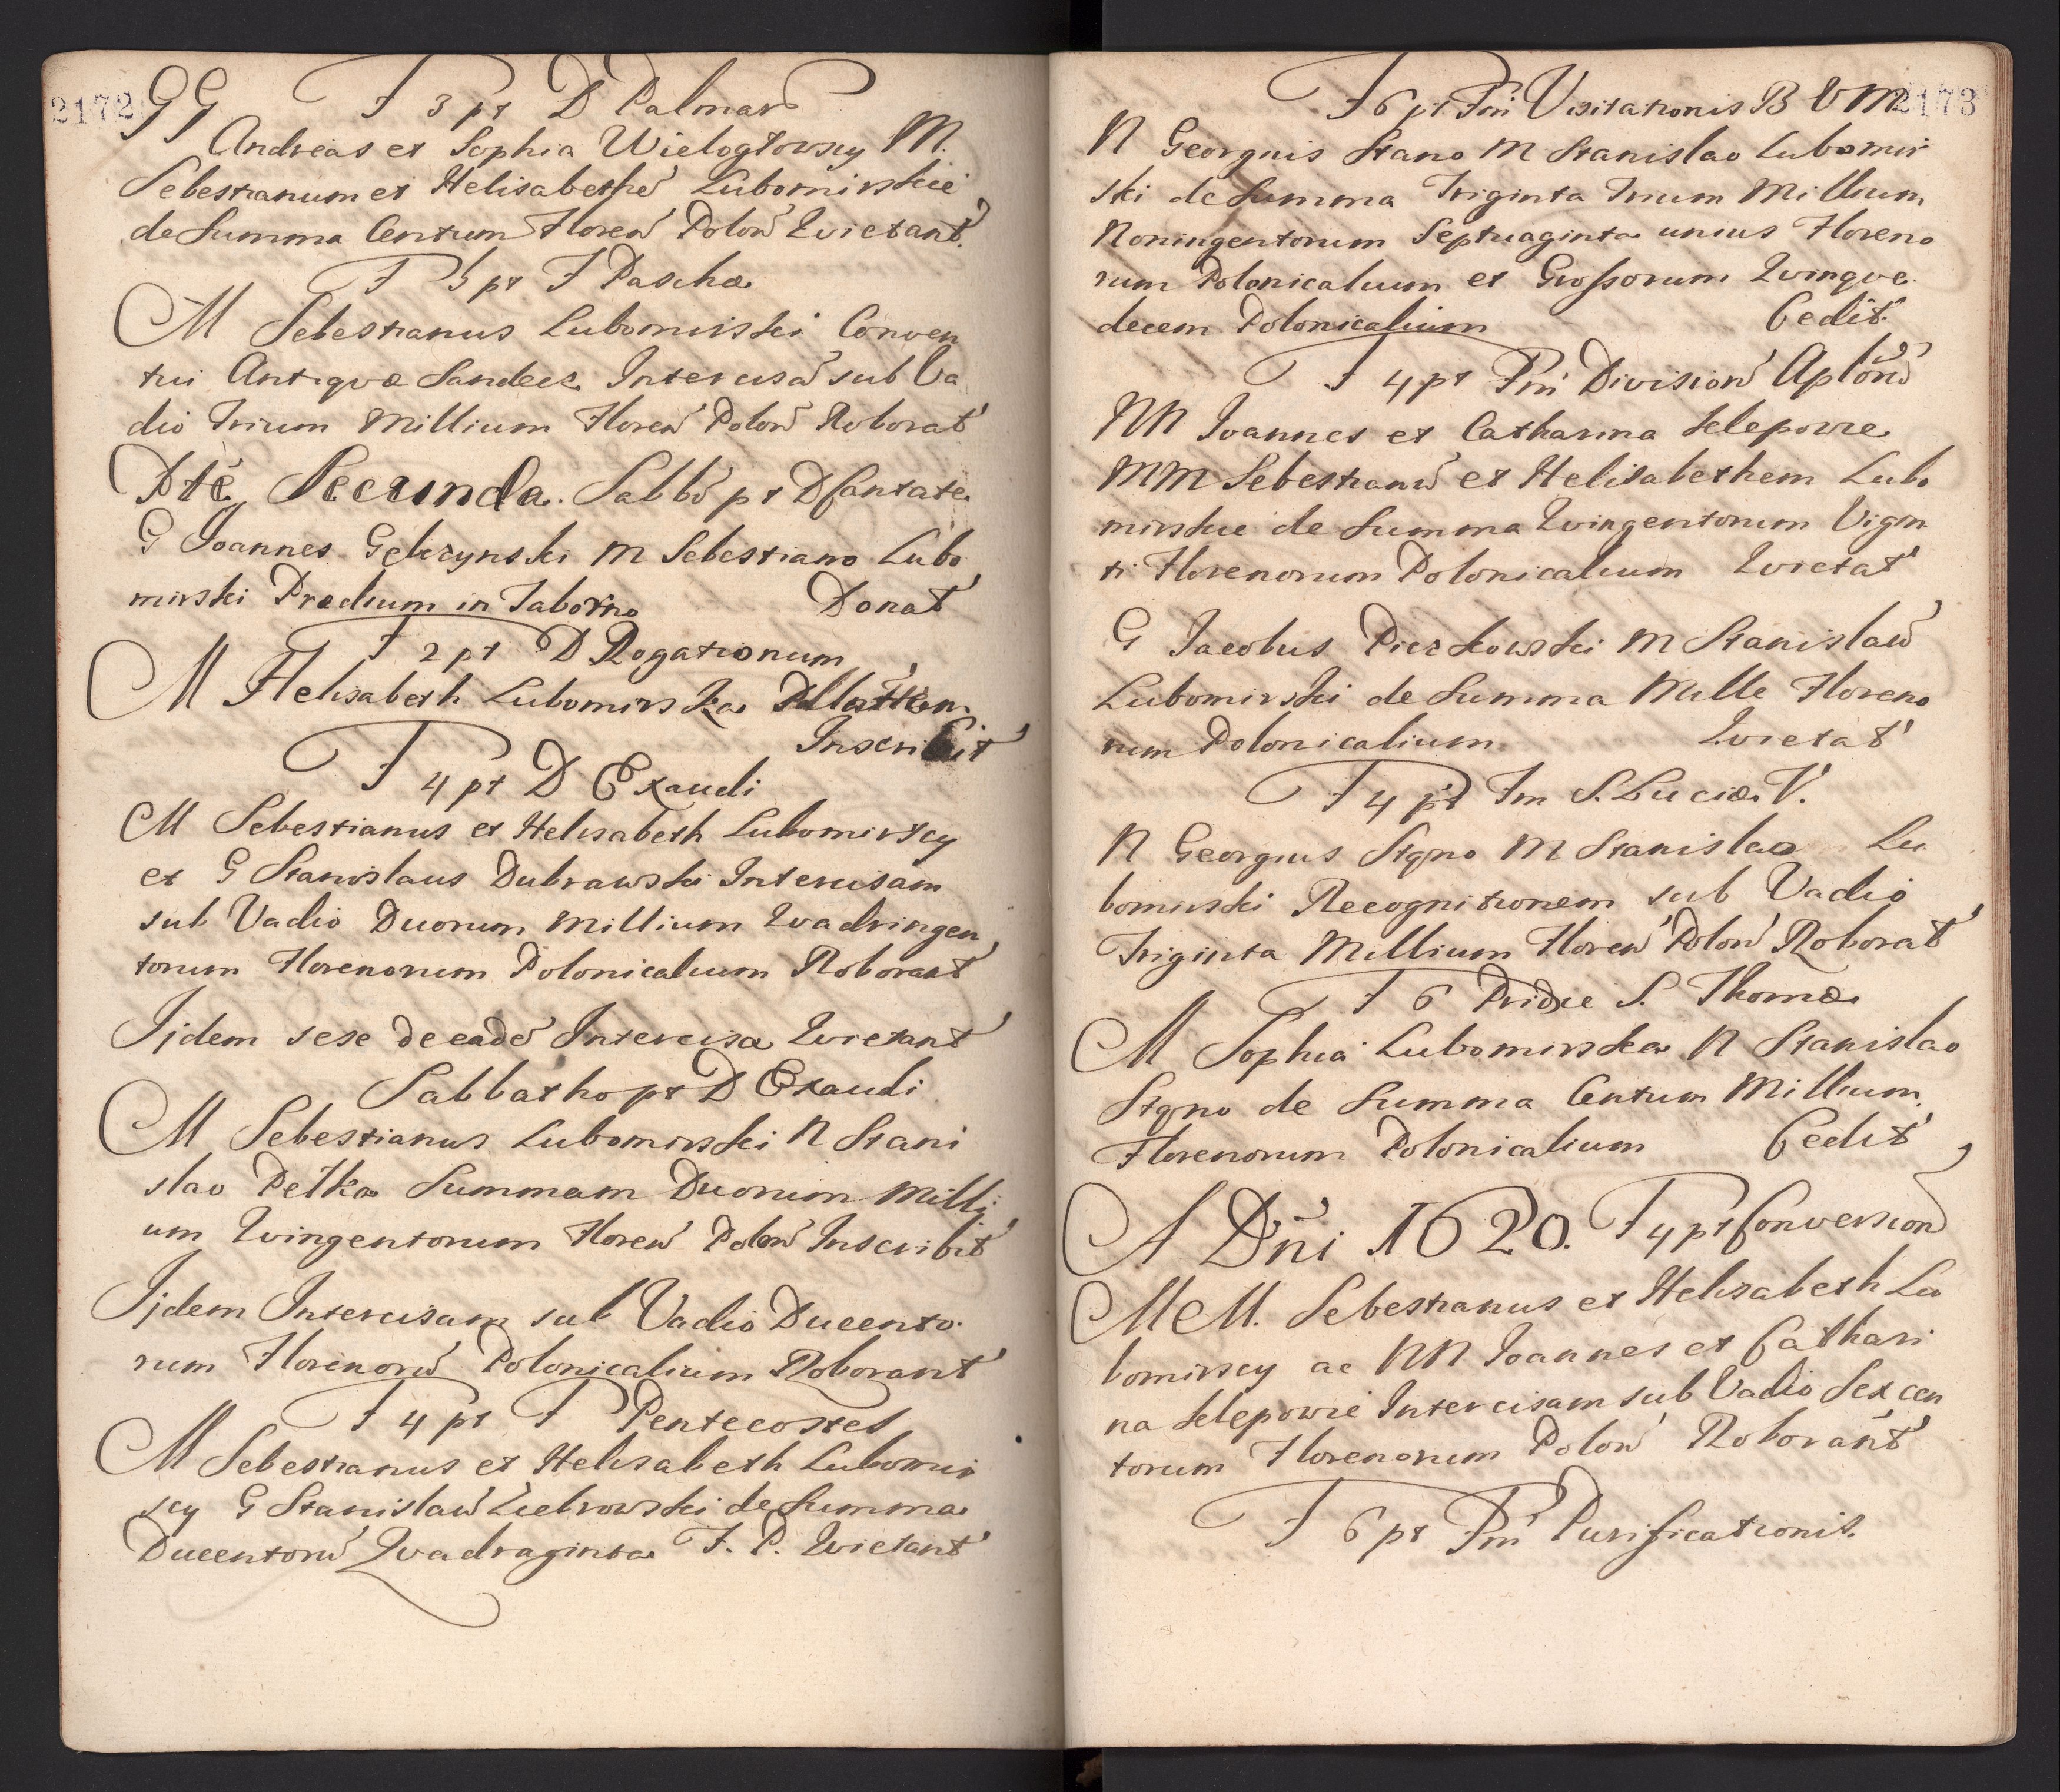 2172
GG F 3 pt D Palmar
Andreas et Sophia Wielogłowscy M.
Sebestianum et Helisabethe Lubomirskie
de Summa Centum Floren Polon Qvietant
F 3 pt F Paschæ
M Sebestianus Lubomirski Conven
tui Antiqvæ Sandecz Intercisa sub Va
dio Trium Millium Floren Polon Roborat
Pte Secunda. Sabbo pt D Cantate
G Joannes Gebczynski M Sebestiano Lubo
mirski Prædium in Taborno Donat
F 2 pt D Rogationum
M Helisabeth Lubomirska
Inscribit
F 4 pt D Exaudi
M Sebestianus et Helisabeth Lubomirscy
et G Stanislaus Dubrawski Intercisam
sub Vadio Duorum Millium Qvadringen
torum Florenorum Polonicalium Roborant
Ijdem sese de eade Intercisa Qvietant
Sabbatho pt D Exaudi
M Sebestianus Lubomirski N Stani
slao Pełka Summam Duorum Milli
um Qvingentorum Floren Polon Inscribit
Ijdem Intercisam sub Vadio Ducento
rum Florenorū Polonicalium Roborant
F 4 pt F Pentecostes
M Sebestianus et Helisabeth Lubomir
scy G Stanislaū de Summa
Ducentorū Qvadraginta F. P. Qvietant
2173
F 6 pt Fm Visitationis B V M
N Georgius Stano M Stanislao Lubomir
ski de Summa Triginta Trium Millium
Noningentorum Septuaginta unius Floreno
rum Polonicalium et Grossorum Qvinqve
decem Polonicalium Cedit
F 4 pt Fm Division Aplorū
NN Joannes et Catharina Selepowie
MM Sebestianū et Helisabethem Lubo
mirskie de Summa Qvingentorum Vigin
ti Florenorum Polonicalium Qvietat
G Jacobus Pieczkowski M Stanislaū
Lubomirski de Summa Mille Floreno
rum Polonicalium Qvietat
F 4 pt Fm S. Luciæ V.
N Georgius Stano M Stanislao Lu
bomirski Recognitionem sub Vadio
Triginta Millium Floren Polon Roborat
F 6 Pridie S. Thomæ
M Sophia Lubomirska N Stanislao
Stano de Summa Centum Millium
Florenorum Polonicalium Cedit
A Dni 1620. F 4 pt Conversion
MM. Sebestianus et Helisabeth Lu
bomirscy ac NN Joannes et Cathari
na Selepowie Intercisam sub Vadio Sexcen
torum Florenorum Polon Roborant
F 6 pt Fm Purificationis